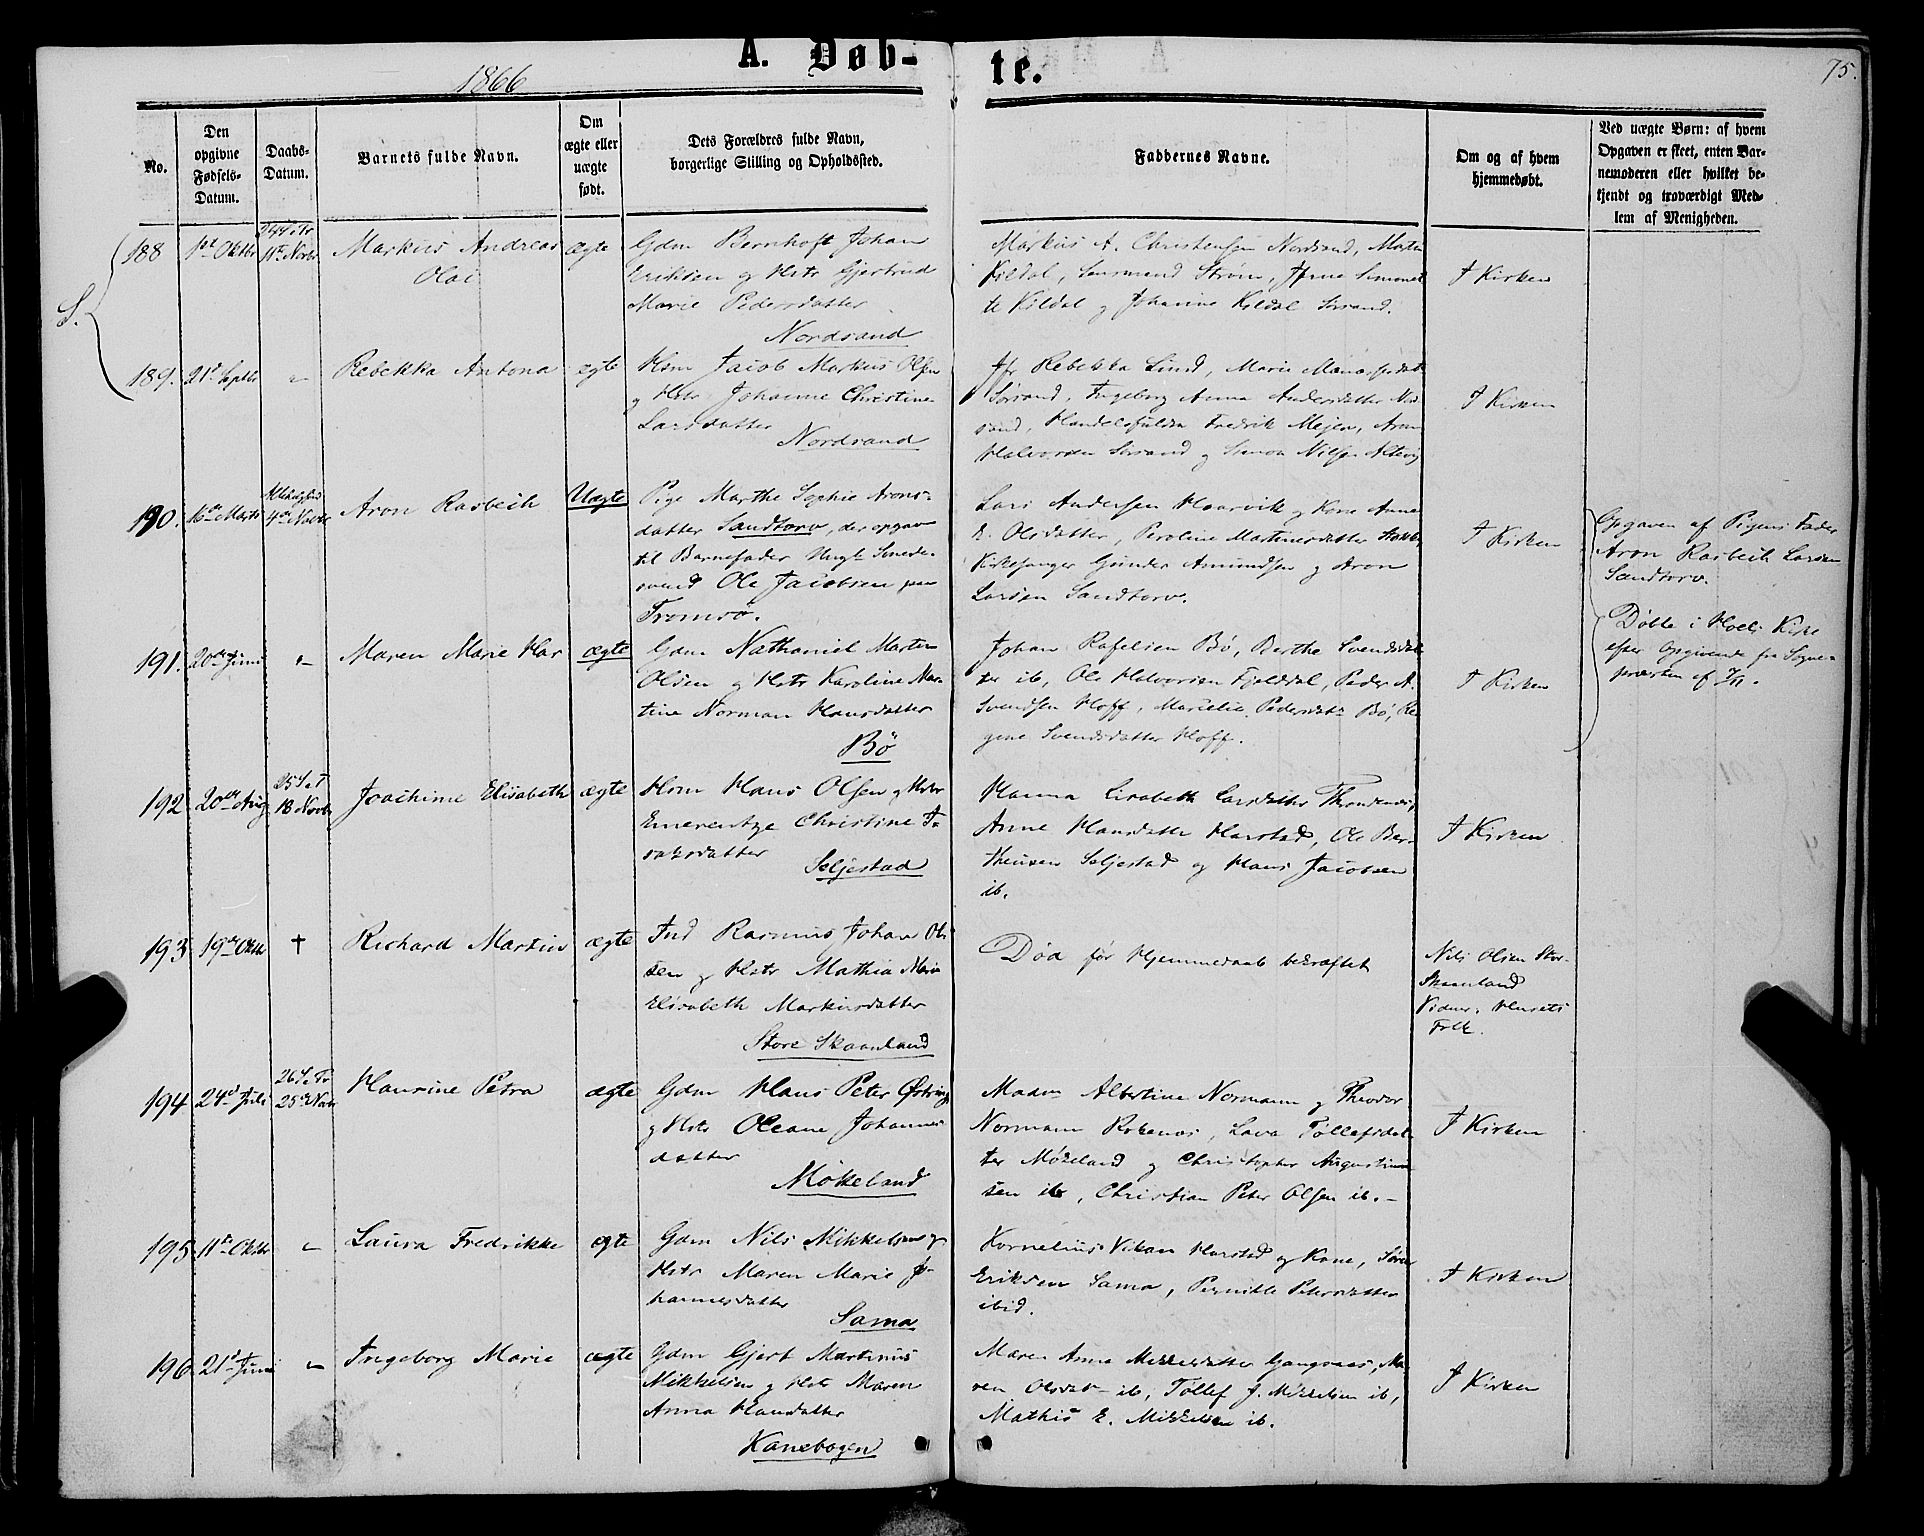 1866
A. Døb-
te.
75.
No.
Den
opgivne
Fødsels-
Datum.
Daabs-
Datum.
Barnets fulde Navn.
Om
ægte eller
uægte
født.
Dets Forældres fulde Navn,
borgerlige Stilling og Opholdssted.
Faddernes Navne.
Om og af hvem
hjemmedøbt.
Ved uægte Børn: af hvem
Opgaven er skeet, enten Bar-
nemoderen eller hvilket be-
kjendt og troværdigt Med-
lem af Menigheden.
S.
188
1ste Oktbr
11te Novbr
Markus Andreas
Olai
ægte
Gdm Bernhoft Johan
Eriksen og Hstr Gjertrud
Marie Pedersdatter
Nordsand
Markus A. Christensen Nordsand, Martin
Kildal, Sensmand Strøm, Jfrne Simonet
te Kildal og Johanne Kildal Sørsand.
I Kirken
189.
21de Septbr
"
Rebekka Antona
ægte
Hsm Jacob Markus Olsen
og Hstr Johanne Christine
Larsdatter
Nordsand
Jfr Rebekka Lind, Marie
Sørsand, Ingeborg Anna Andersdatter Nord
sand, Handelsfuldm Fredrik Mejer, Aron
Halvorsen Sørsand og Simon Nilsen Altevig
I Kirken
190.
16de Marts
Allehelgens
4de Novbr
Aron Rasbech
Uægte
Pige Marthe Sophie Arons-
datter Sandtorv, der opgav
til Barnefader Ungk Smede-
svend Ole Jacobsen paa
Tromsø.
Lars Andersen Haarvik og Kone Anne
E. Olsdatter, Peroline Martinusdatter
Kirkesanger Gunder Amundsen og Aron
Larsen Sandtorv.
I Kirken
Opgaven af Pigens Fader
Aron Rasbech Larsen
Sandtorv.
191.
20de Juni
"
Maren Marie Har
ægte
Gdm Nathaniel Marten
Olsen og Hstr Karoline Mar-
tine Norman Hansdatter
Bø
Johan Rafelsen Bø, Berthe Svendsdat
ter ib, Ole Halvorsen Fjelddal, Peder A.
Svendsen Hoff, Marielie Pedersdatr Bø, Re
gine Svendsdatter Hoff.
I Kirken
Døbte i Hols Kirke
efter Opgivende fra Sogne-
præsten af
192
20de Aug
25 S e T
18 Novbr
Joachime Elisabeth
ægte
Hsm Hans Olsen og Hstr
Emerentze Christine I-
saksdatter
Seljestad
Hanna Lisabeth Larsdatter Throndenes,
Anne Hansdattr Harstad, Ole Ber-
theusen Seljestad og Hans Jacobsen
ib.
I Kirken
193
19de Oktb
†
Richard Martin
ægte
Ind Rasmus Johan Ol-
sen og Hstr Mathia Marie
Elisabeth Markusdatter
Store Skaanland
Død før Hjemmedaab bekræftet
Nils Olsen Stor-
Skaanland
Vidner. Husets
Folk.
194
24de Juli
26 S e Tr
25de Novbr
Haurine Petra
ægte
Gdm Hans Peter Østring
og Hstr Oleane Johannes-
datter
Møkeland
Madm Albertine Normann og Theodor
Normann Rokenes, Lava Tøllefsdat-
ter Møkeland og Christopher Augustinu-
sen ib, Christian Peter Olsen ib. -
I Kirken
195
11te Oktbr
"
Laura Fredrikke
ægte
Gdm Nils Mikkelsen og
Hstr Maren Marie Jo-
hannesdatter
Sama
Kornelius Vikan Harstad og Kone, Søren
Eriksen Sama, Pernille Petersdatter
ibid.
I Kirken
196
21de Juni
"
Ingeborg Marie
ægte
Gdm Gjert Martinus
Mikkelsen og Hstr Maren
Anna Hansdatter
Kanebogen
Maren Anna Mikkelsdatter Gangsaas, Ma-
ren Olsdatr ib, Tøllef J. Mikkelsen ib,
Mathis E. Mikkelsen ib.
I Kirken